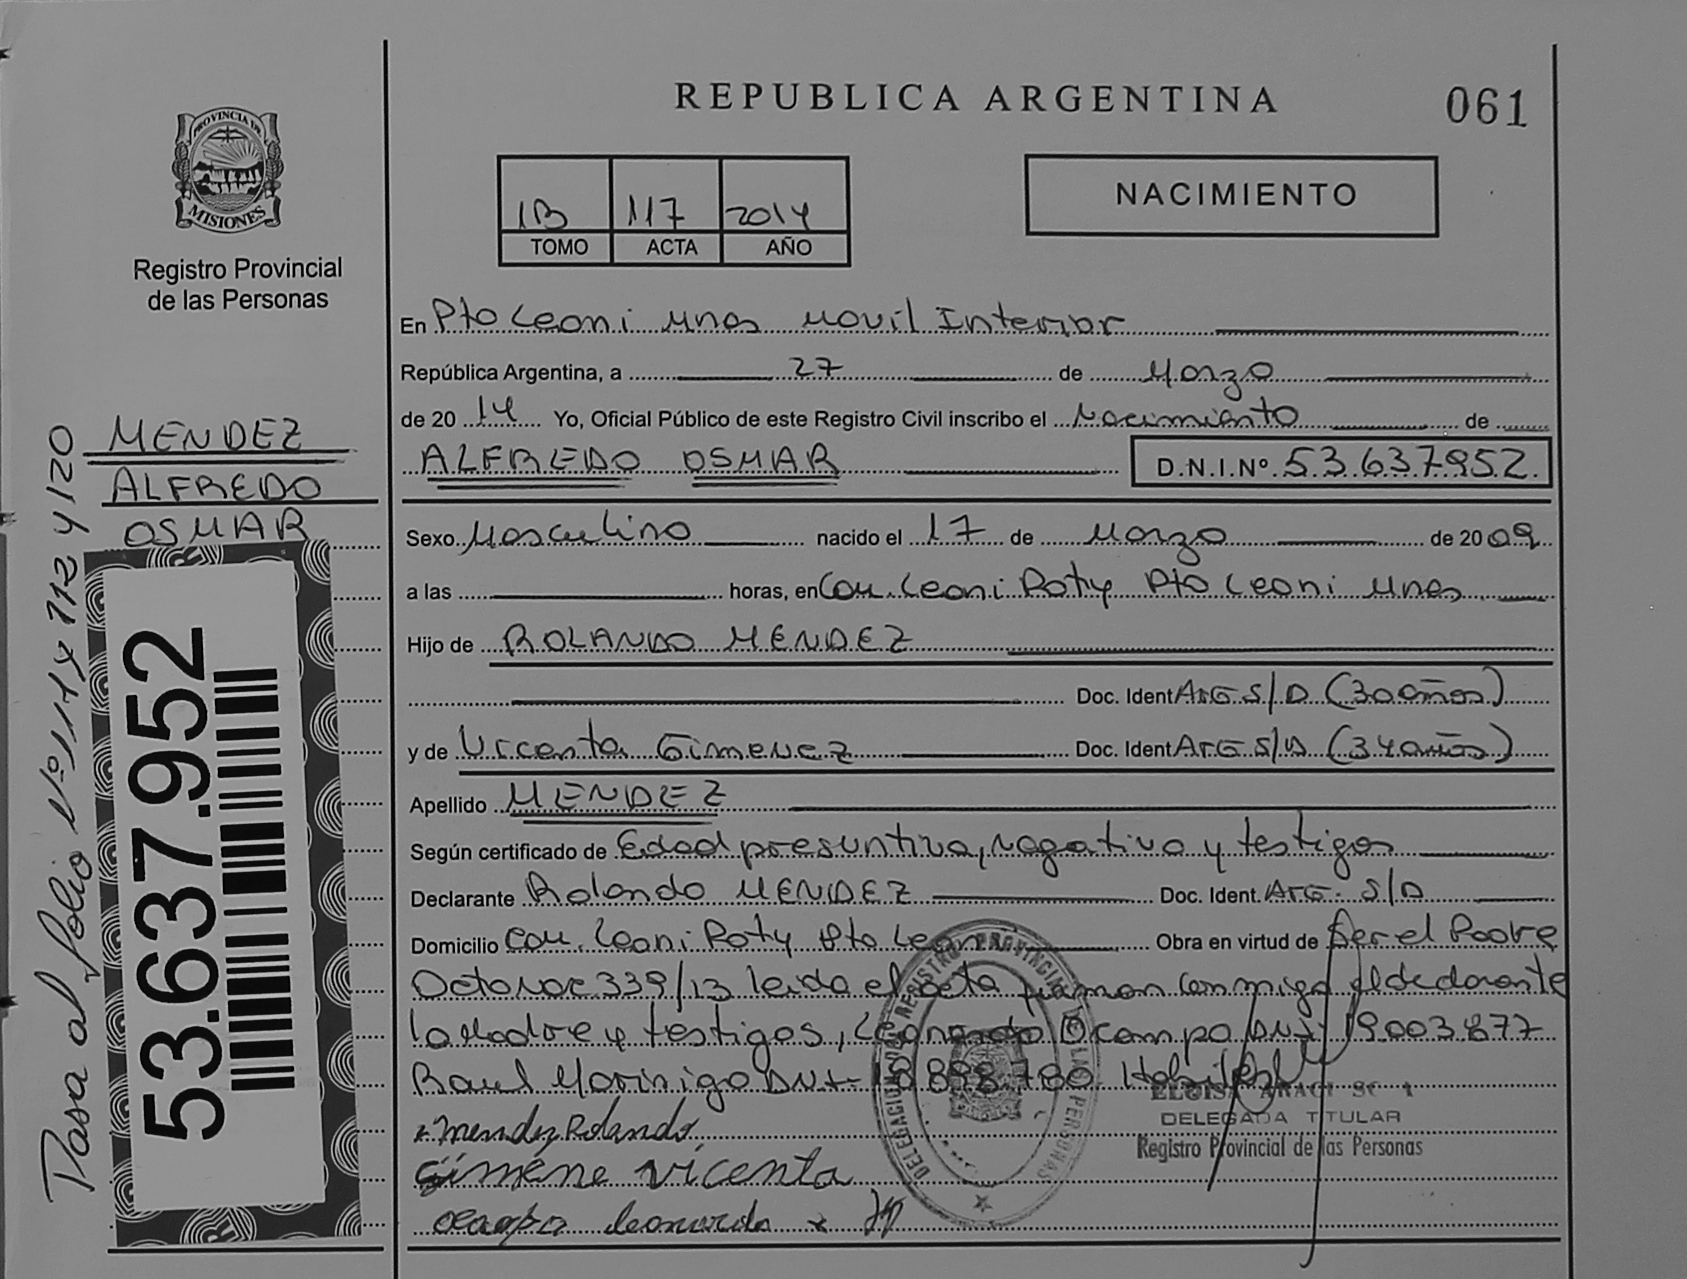 REPUBLICA ARGENTINA
061
PROVINCIA DE
MISIONES
Registro Provincial
de las Personas
1B 117 2014
TOMO ACTA AÑO
NACIMIENTO
En Pto Leoni Mnes Movil Interior
República Argentina, a 27 de Marzo
de 2014 Yo, Oficial Público de este Registro Civil inscribo el Nacimiento de
ALFREDO OSMAR D.N.I.Nº. 53.637.952.
Sexo Masculino nacido el 17 de Marzo de 2009
a las horas, en Com. Leoni Poty Pto Leoni Mnes
Hijo de ROLANDO MENDEZ
Doc. Ident Arg S/D (30 años)
y de Vicenta Gimenez Doc. Ident Arg S/D (34 años)
Apellido MENDEZ
Según certificado de Edad presuntiva, negativa y testigos
Declarante Rolando MENDEZ Doc. Ident. Arg. S/D
Domicilio Com. Leoni Poty Pto Leoni Obra en virtud de Ser el Padre
339/13 leida el acta firman conmigo el declarante
la Madre y testigos, Leonardo Ocampo DNI 19.003.877
Raul Morinigo DNI 18.898.780
Mendez Rolando
Gimene vicenta
leonardo
DELEGADA TITULAR
Registro Provincial de las Personas
MENDEZ
ALFREDO
OSMAR
53.637.952
Pasa al folio Nº